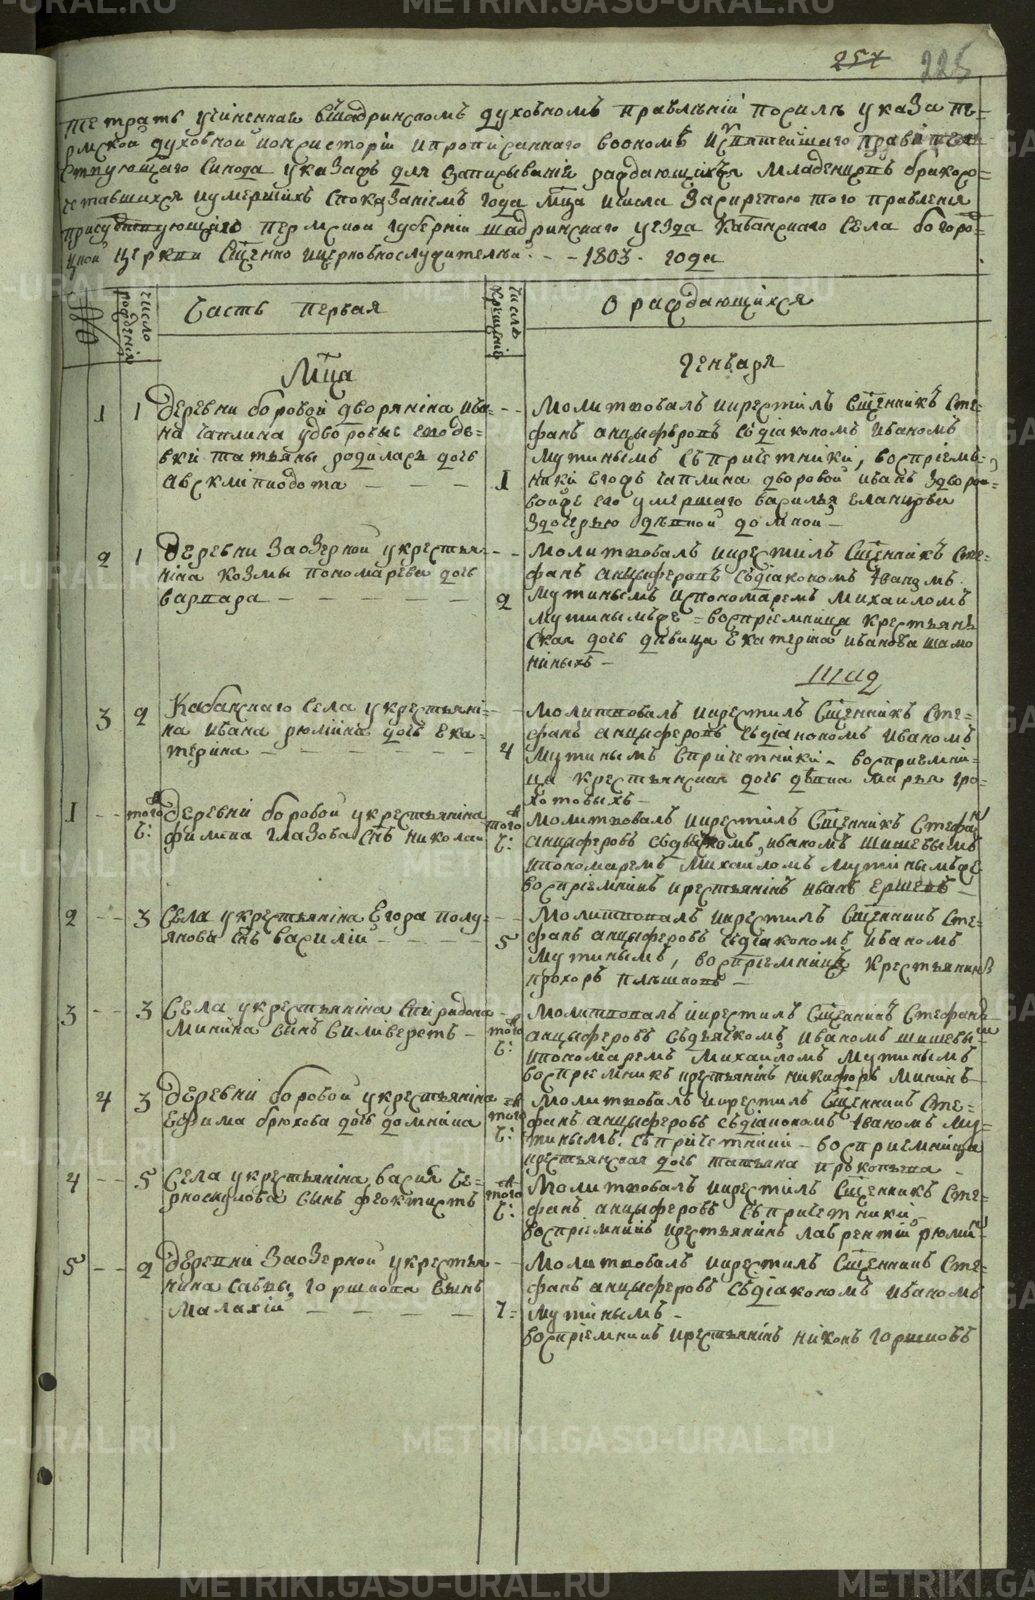 257 225
Тетрать учиненная вшадринскомъ духовномъ правлѣнiи посилѣ указа пѣ=
рмской духовной консисторiи ипрописаннаго воономъ изсвятейшаго правител=
ствующаго синода указахъ для записыванiя раждающихся младенцовъ бракосо=
четавшихся иумершихъ споказанiемъ года мца ичисла заскрепою того правленiя
присудствующаго пермской губернiи шадринскаго уезда кабанскаго села богоро=
цкой церкви сщенно ицерковнослужителми - - 1803 - года
число рожденiя
Часть первая
число крещенiя
О раждающихся
Мца
Генъваря
1 1 деревни боровой дворянина ива=
на чаплина удворовыс его де=
вки татьяны родиласъ дочь
Авсклипiодота
1
Молитвовалъ икрестилъ сщенникъ сте=
фанъ анцыферовъ съдiакономъ Иваномъ
Мутинымъ съпричетники, воспрiемъ=
ники егожъ чаплина дворовой иванъ
его умершаго василья
здочерью
2 1 деревни Заозерной укрестья=
нина козмы пономарева дочь
варвара
2
Молитвовалъ икрестилъ сщенникъ сте=
фанъ анцыферовъ съдiакономъ Иваномъ
Мутинымъ испономаремъ Михаиломъ
Мутинымъже = воспрiемница крестьянъ
ская дочь дѣвица Екатерина иванова
3 2 Кабанскаго села укрестьянi=
на ивана рюмина дочь ека=
терина
4
Молитвовалъ икрестилъ сщенникъ сте=
фанъ анцыферовъ съдiакономъ иваномъ
Мутинымъ спричетники - восприемни=
ца крестьянская дочь дѣвка Марья гро=
хотовыхъ
1 - - того ч: деревни боровой укрестьянина
филипа глазова снъ николаи
того ч:
Молитвовалъ икрестилъ сщенникъ стефанъ
анцыферовъ съдьячкомъ иваномъ шишевымъ
ипономаремъ Михаиломъ Мутинымъже
воспрiемникъ крестьянинъ иванъ ершевъ
2 - - 3 села укрестьянина Егора полу=
янова снъ василiй
5
Молитвовалъ икрестилъ сщенникъ сте=
фанъ анцыферовъ съдiакономъ иваномъ
Мутинымъ, воспрiемникъ крестьянинъ
прохоръ плѣшковъ
3 - - 3 села укрестьянина спиридона
Минина сынъ силиверстъ
того ч:
Молитвовалъ икрестилъ сщенникъ стефанъ
анцыферовъ съдьячкомъ иваномъ шишевы=
ипономаремъ Михаиломъ Мутинымъ
воспрiемникъ крестьянинъ никифоръ Мининъ
4 3 деревни боровой укрестьянина
Ефима брюхова дочь домника
того ч:
Молитвовалъ икрестилъ сщенникъ сте=
фанъ анцыферовъ съдiакономъ Иваномъ Му=
тинымъ. съпричетники - восприемница
крестьянская дочь татьяна прокопьева
4 - - 5 села укрестьянина васил че=
рноскулова сынъ феоктистъ
того ч:
Молитвовалъ икрестилъ сщенникъ сте=
фанъ анцыферовъ съпричетники
воспрiемникъ крестьянинъ лаврентiй рюмин
5 - - 2 деревни Заозерной укрестья
нина савы горшкова сынъ
Малахiй
7=
Молитвовалъ икрестилъ сщенникъ сте=
фанъ анцыферовъ съдiакономъ иваномъ
Мутинымъ
воспрiемникъ крестьянинъ никонъ горшковъ
METRIKI.GASO-URAL.RU